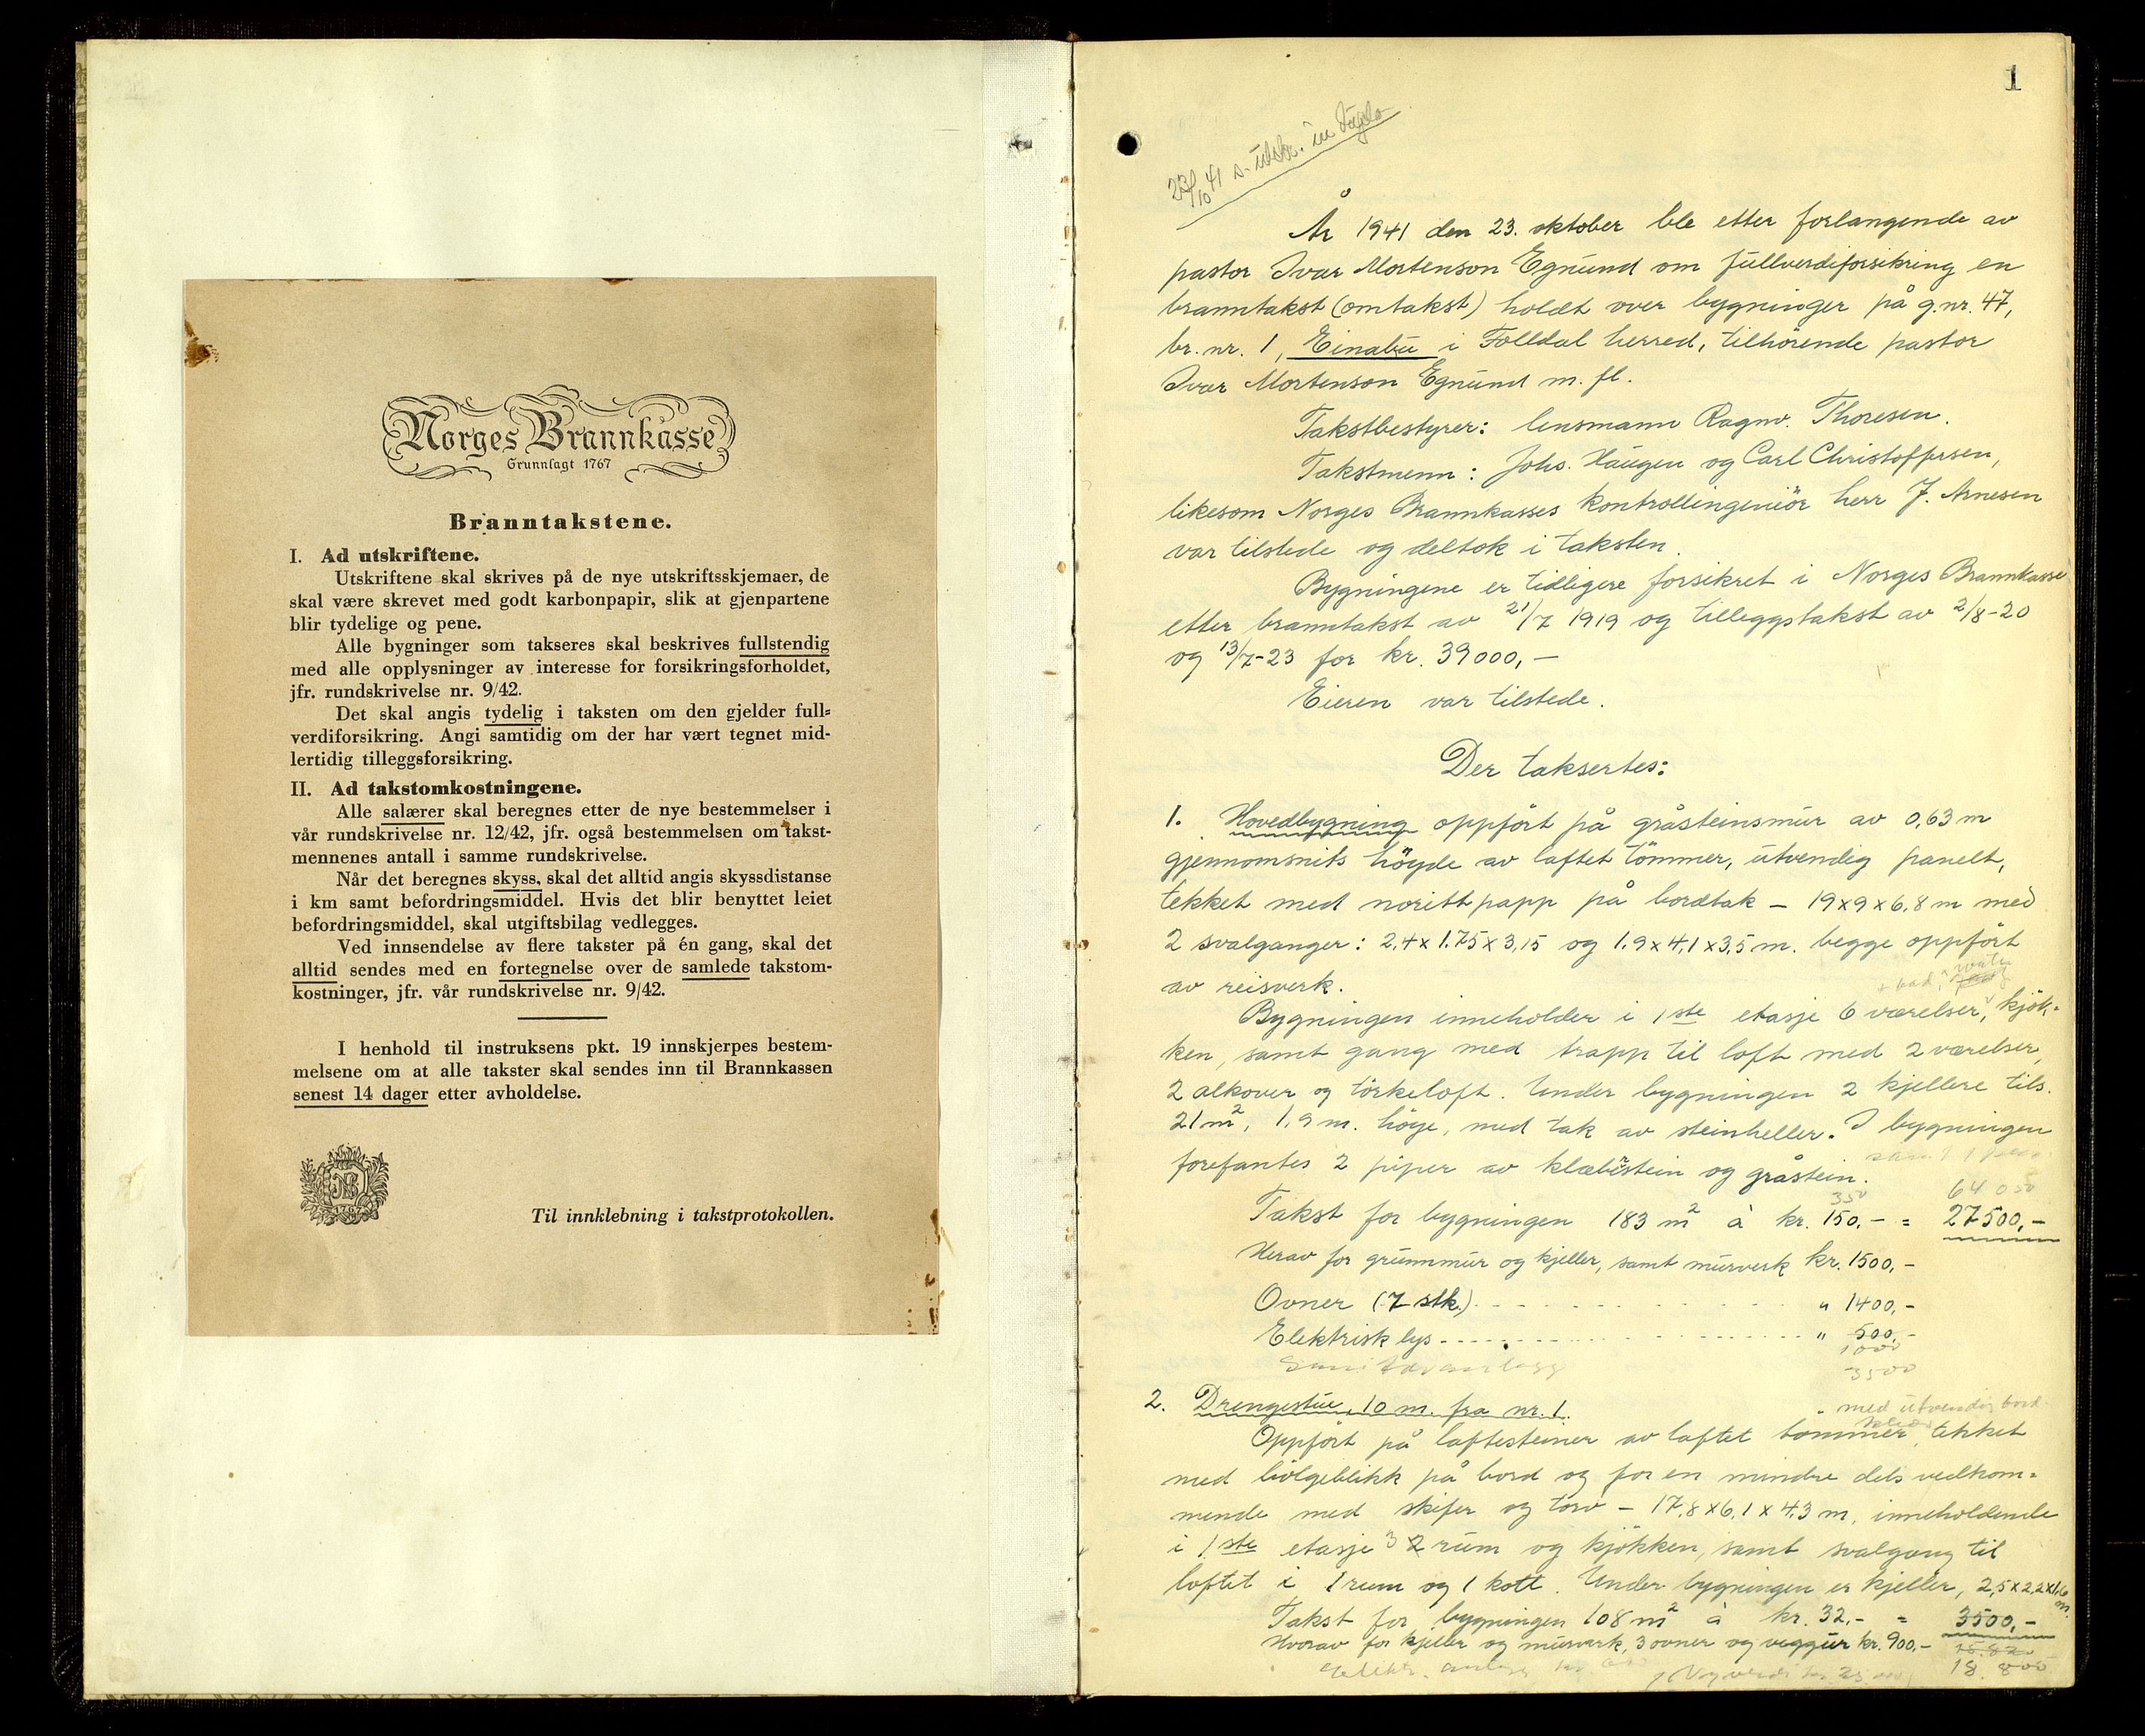 Norges Brannkasse
Grunnlagt 1767
Branntakstene.
I. Ad utskriftene.
Utskriftene skal skrives på de nye utskriftsskjemaer, de
skal være skrevet med godt karbonpapir, slik at gjenpartene
blir tydelige og pene.
Alle bygninger som takseres skal beskrives fullstendig
med alle opplysninger av interesse for forsikringsforholdet,
jfr. rundskrivelse nr. 9/42.
Det skal angis tydelig i taksten om den gjelder full-
verdiforsikring. Angi samtidig om der har vært tegnet mid-
lertidig tilleggsforsikring.
II. Ad takstomkostningene.
Alle salærer skal beregnes etter de nye bestemmelser i
vår rundskrivelse nr. 12/42, jfr. også bestemmelsen om takst-
mennenes antall i samme rundskrivelse.
Når det beregnes skyss, skal det alltid angis skyssdistanse
i km samt befordringsmiddel. Hvis det blir benyttet leiet
befordringsmiddel, skal utgiftsbilag vedlegges.
Ved innsendelse av flere takster på én gang, skal det
alltid sendes med en fortegnelse over de samlede takstom-
kostninger, jfr. vår rundskrivelse nr. 9/42.
I henhold til instruksens pkt. 19 innskjerpes bestem-
melsene om at alle takster skal sendes inn til Brannkassen
senest 14 dager etter avholdelse.
NB
1767
Til innklebning i takstprotokollen.
1
År 1941 den 23. oktober ble etter forlangende av
pastor Ivar Mortenson Egnund om fullverdiforsikring en
branntakst (omtakst) holdt over bygninger på g.nr. 47,
br. nr. 1, Einabu i Folldal herred, tilhørende pastor
Ivar Mortenson Egnund m. fl.
Takstbestyrer: lensmann Ragnv. Thoresen.
Takstmenn: Johs. Haugen og Carl Christoffersen,
likesom Norges Brannkasses kontrollingeniör herr J. Arnesen
var tilstede og deltok i taksten.
Bygningene er tidligere forsikret i Norges Brannkasse
etter branntakst av 21/7 1919 og tilleggstakst av 2/8-20
og 13/7-23 for kr. 39000,-
Eieren var tilstede.
Der taksertes:
1. Hovedbygning oppført på gråsteinsmur av 0,63 m
gjennomsnits høyde av laftet tömmer, utvendig panelt,
tekket med noritt papp på bordtak - 19x9x6,8 m med
2 svalganger: 2,4x1.75x3,15 og 1.9x4,1x3,5 m. begge oppført
av reisverk.
+ bad,
Bygningen inneholder i 1ste etasje 6 værelser, kjök-
ken, samt gang med trapp til loft med 2 værelser,
2 alkover og törkeloft. Under bygningen 2 kjellere tils.
21 m2, 1,9 m. höye, med tak av steinheller. I bygningen
forefantes 2 piper av klæberstein og gråstein.
350 64 050
Takst for bygningen 183 m2 à kr. 150,- = 27500,-
Herav for grunnmur og kjeller, samt murverk kr. 1500,-
Ovner (7 stk.) " 1400,-
Elektrisk lys " 500,-
1000
Sanitæranlegg 3500
2. Drengestue, 10 m. fra nr. 1.
med utvendig bord
Oppført på laftesteiner av laftet tømmer, tekket
med bölgeblikk på bord og for en mindre dels vedkom-
mende med skifer og torv - 17,8x6,1x4,3 m, inneholdende
i 1ste etasje 3 2 rum og kjøkken, samt svalgang til
loftet i 1 rum og 1 kott. Under bygningen er kjeller, 2,5x2,2x1,6 m.
Takst for bygningen 108 m2 à kr. 32,- = 3500,-
Hvorav for kjeller og murverk, 3 ovner og veggur kr. 900,-
18. 800